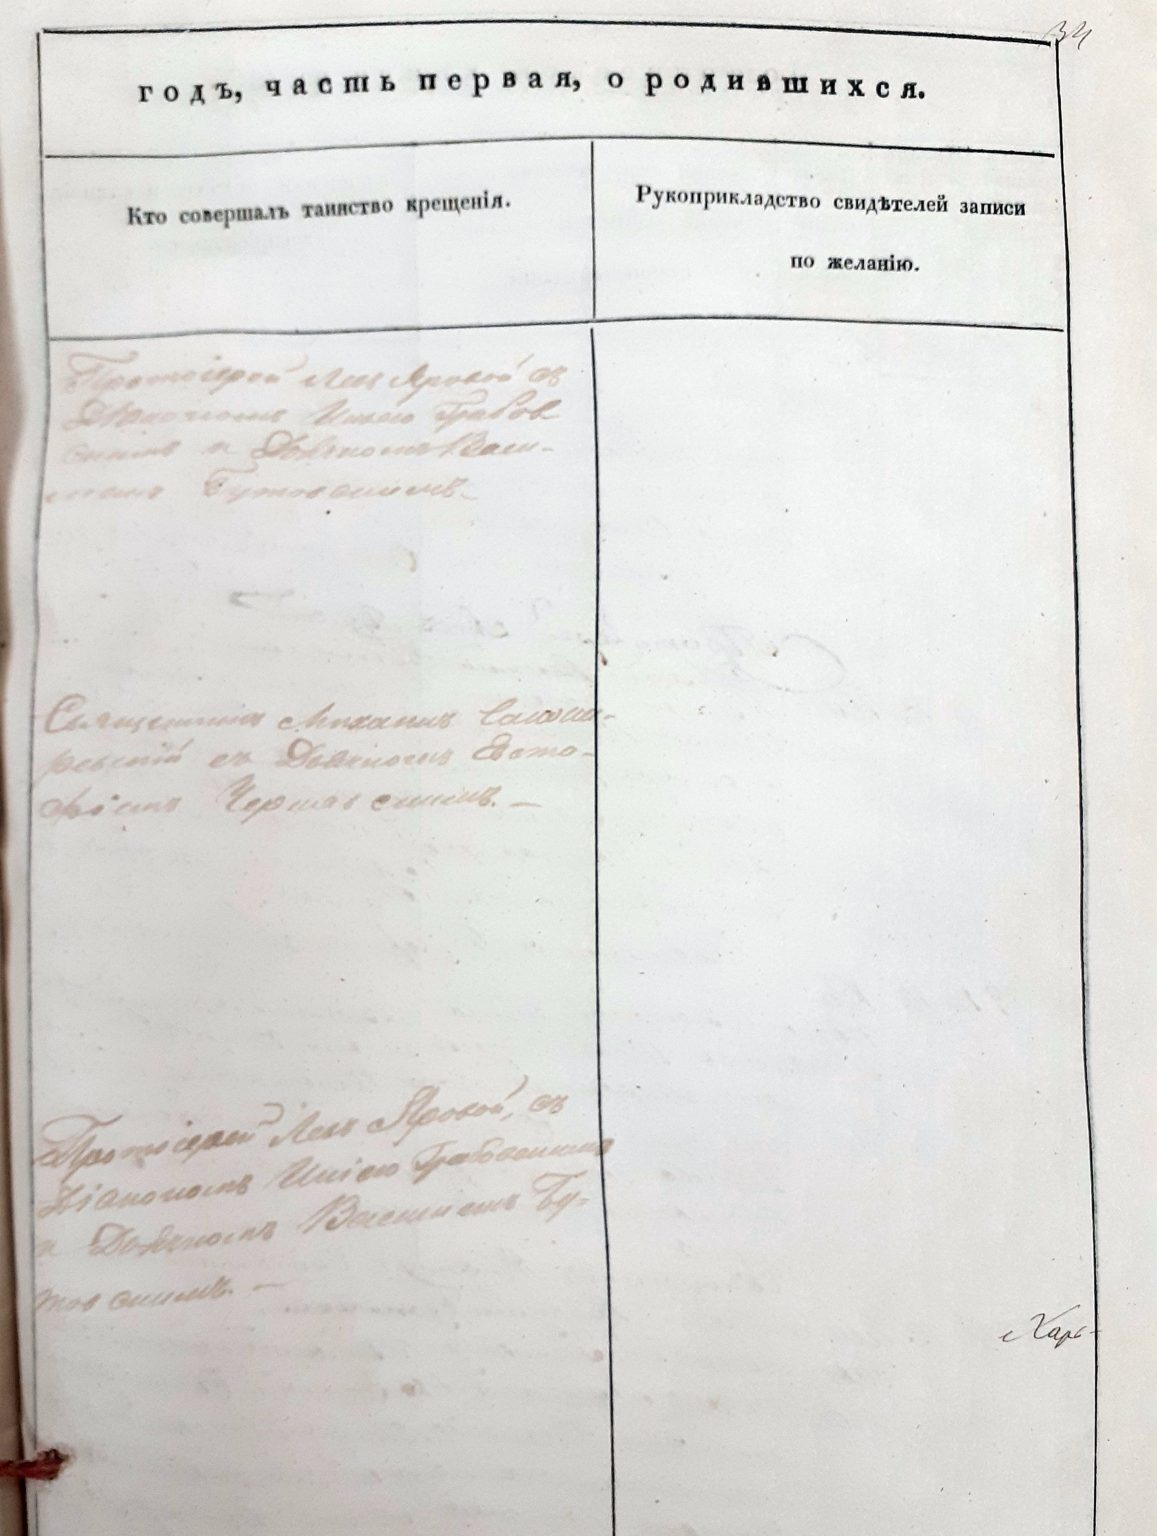 34
годъ, часть первая, о родившихся.
Кто совершалъ таинство крещенія.
Рукоприкладство свидѣтелей записи
по желанію.
Протоіерей Левъ Яровой съ
Діакономъ Иліею Грабов
скимъ и Дьячкомъ Васи-
ліемъ Бутовскимъ.
Священникъ Михаилъ
съ Дьячкомъ Евста-
фіемъ Чернявскимъ. —
Протоіерей Левъ Яровой, съ
Діакономъ Иліею Грабовскимъ
и Дьячкомъ Василіемъ Бу-
товскимъ. —